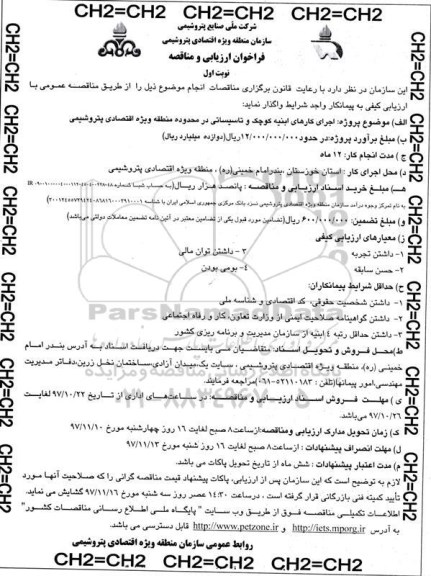 CH2=CH2 CH2=CH2 CH2=CH2 CH2=CH2
شرکت ملی صنایع پتروشیمی
سازمان منطقه ویژه اقتصادی پتروشیمی
فراخوان ارزیابی و مناقصه
نوبت اول
این سازمان در نظر دارد با رعایت قانون برگزاری مناقصات انجام موضوع ذیل را از طریق مناقصه عمومی با
ارزیابی کیفی به پیمانکار واجد شرایط واگذار نماید:
الف) موضوع پروژه: اجرای کارهای ابنیه کوچک و تاسیساتی در محدوده منطقه ویژه اقتصادی پتروشیمی
ب) مبلغ برآورد پروژه: در حدود ۱۲/۰۰۰/۰۰۰/۰۰۰ ریال (دوازده میلیارد ریال)
ج) مدت انجام کار: ۱۲ ماه
د) محل اجرای کار: استان خوزستان، بندر امام خمینی(ره)، منطقه ویژه اقتصادی پتروشیمی
هـ) مبلغ خرید اسناد ارزیابی و مناقصه: پانصد هزار ریال (به حساب شبا کد شماره
به نام تمرکز وجوه درآمد سازمان منطقه ویژه اقتصادی پتروشیمی نزد بانک مرکزی جمهوری اسلامی ایران با شناسه
و) مبلغ تضمین: ۶۰۰/۰۰۰/۰۰۰ ریال (تضامین مورد قبول یکی از تضامین معتبر در آئین نامه تضمین معاملات دولتی می‌باشد)
ز) معیارهای ارزیابی کیفی
۱- داشتن تجربه
۳- داشتن توان مالی
۲- حسن سابقه
۴- بومی بودن
ح) حداقل شرایط پیمانکاران:
۱- داشتن شخصیت حقوقی، کد اقتصادی و شناسه ملی
۲- داشتن گواهینامه صلاحیت ایمنی از وزارت تعاون، کار و رفاه اجتماعی
۳- داشتن حداقل رتبه ۴ ابنیه از سازمان مدیریت و برنامه ریزی کشور
ط) محل فروش و تحویل اسناد: متقاضیان می بایست جهت دریافت اسناد به آدرس بندر امام
خمینی (ره)، منطقه ویژه اقتصادی پتروشیمی، سایت یک، میدان آزادی، ساختمان نخل زرین، دفاتر مدیریت
مهندسی، امور پیمانها (تلفن: ۵۲۱۱۰۱۸۳-۰۶۱) مراجعه فرمایند.
ی) مهلت فروش اسناد ارزیابی و مناقصه: در ساعت‌های اداری از تاریخ ۹۷/۱۰/۲۲ لغایت
۹۷/۱۰/۲۶ می‌باشد.
ک) زمان تحویل مدارک ارزیابی ومناقصه: ازساعت۸ صبح لغایت ۱۶ روز چهارشنبه مورخ ۹۷/۱۱/۱۰
ل) مهلت انصراف پیشنهادات: ازساعت۸ صبح لغایت ۱۶ روز شنبه مورخ ۹۷/۱۱/۱۳
م) مدت اعتبار پیشنهادات: شش ماه از تاریخ تحویل پاکات می باشد.
لازم به توضیح است که این سازمان پس از ارزیابی، پاکات پیشنهاد قیمت مناقصه گرانی را که صلاحیت آنها مورد
تأیید کمیته فنی بازرگانی قرار گرفته است، درساعت ۱۴:۳۰ عصر روز سه شنبه مورخ ۹۷/۱۱/۱۶ گشایش می نماید.
اطلاعات تکمیلی مناقصه فوق از طریق وب سایت "پایگاه ملی اطلاع رسانی مناقصات کشور"
به آدرس http://iets.mporg.ir و http://www.petzone.ir قابل دسترسی می باشد.
روابط عمومی سازمان منطقه ویژه اقتصادی پتروشیمی
CH2=CH2 CH2=CH2 CH2=CH2 CH2=CH2